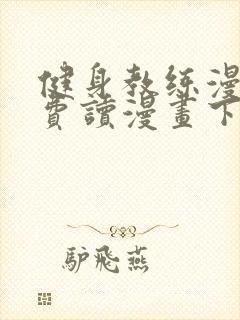 健身教练漫
費讀漫畫下
驴飛燕